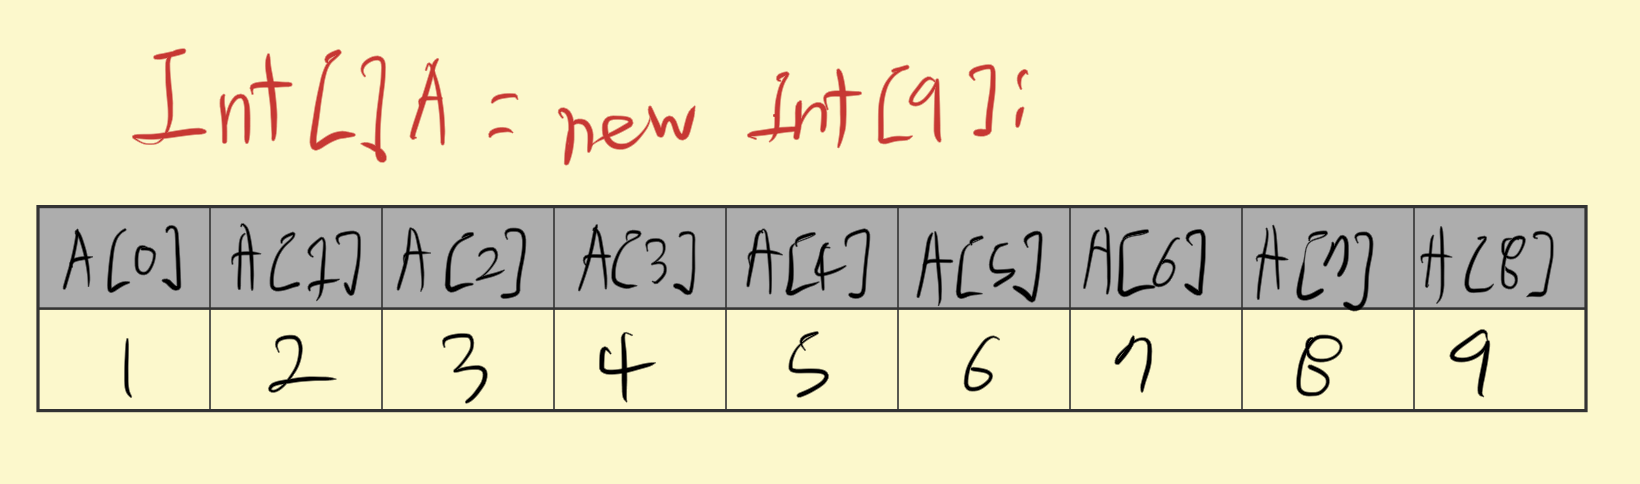 Int[]A = new Int[9];
A[0] A[1] A[2] A[3] A[4] A[5] A[6] A[7] A[8]
1 2 3 4 5 6 7 8 9